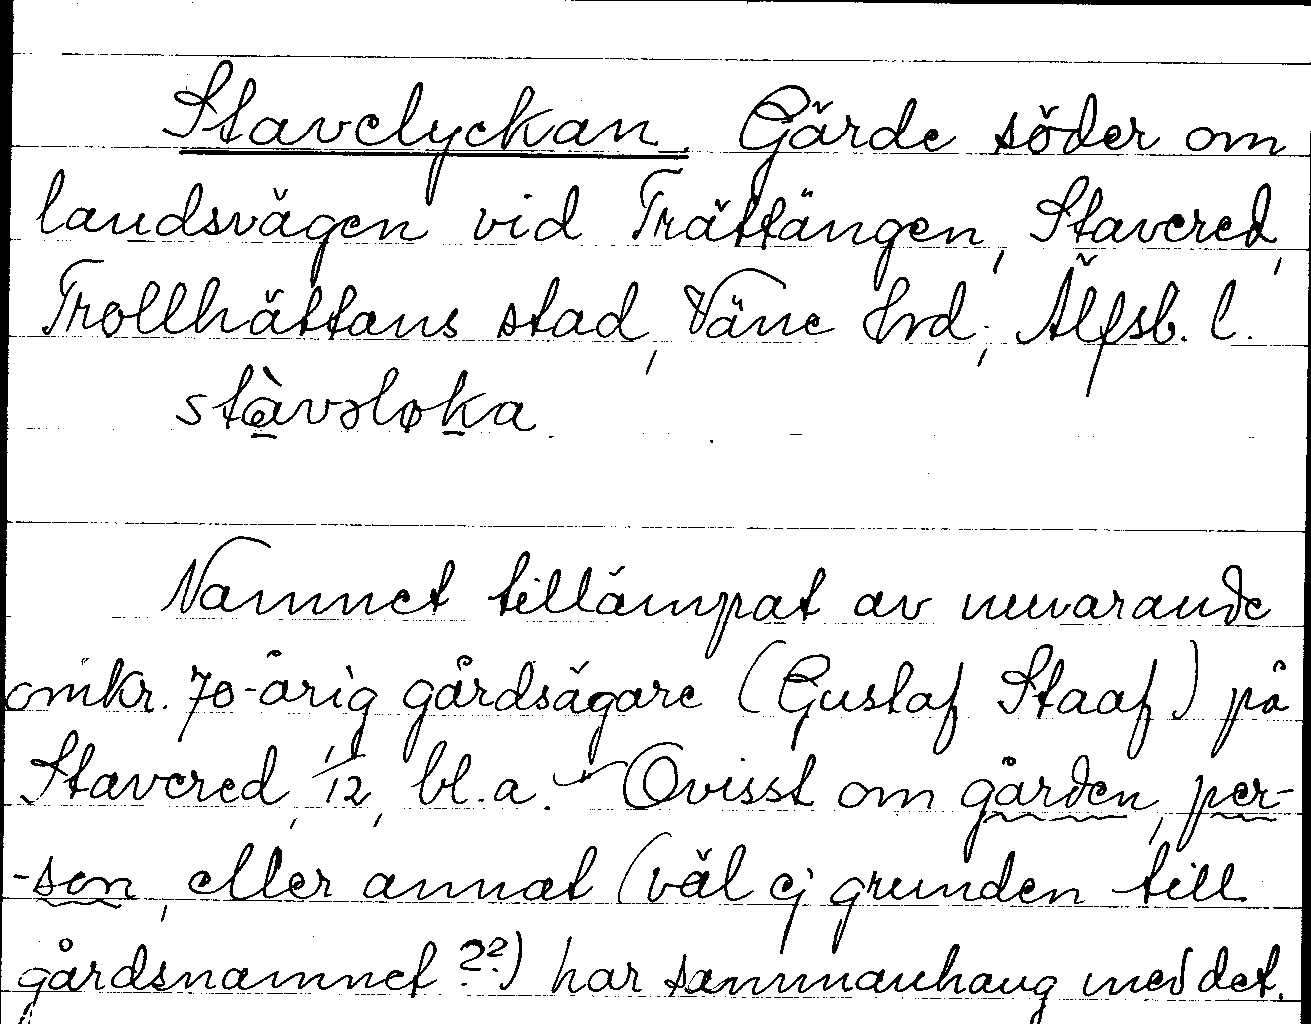 Stavelyckan. Gärde söder om
landsvägen vid Trättängen, Stavered,
Trollhättans stad, Väne hrd; Älfsb. l.
stàvəløka
Namnet tillämpat av nuvarande
omkr. 70-årig gårdsägare (Gustaf Staaf) på
Stavered, 1/12, bl.a. – Ovisst om gården, per-
-son, eller annat (väl ej grunden till
gårdsnamnet ??) har sammanhang med det.